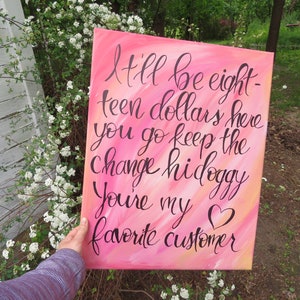 It'll be eigh-
teen dollars here
you go keep the
change hi doggy
You're my
favorite customer